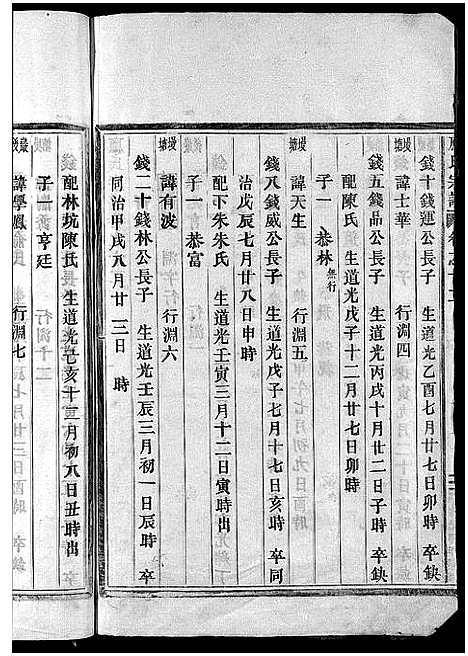 氏宗譜
錢十錢運公長子 生道光乙酉七月廿七日卯時 卒缺
諱士華 行淵四
錢五錢品公長子 生道光丙戌十月廿二日子時 卒缺
配陳氏 生道光戊子十二月廿七日卯時
子一 恭林 無行
諱天生 行淵五
錢八錢威公長子 生道光戊子七月十七日亥時 卒同
治戊辰七月廿八日申時
配下朱朱氏 生道光壬寅三月十二日寅時出
子一 恭富
諱有波 行淵六
錢二十錢林公長子 生道光壬辰三月初一日辰時 卒
同治甲戌八月廿三日 時
配林坑陳氏 生道光己亥十二月初八日丑時出
子一 亨廷
諱學鳳 行淵七